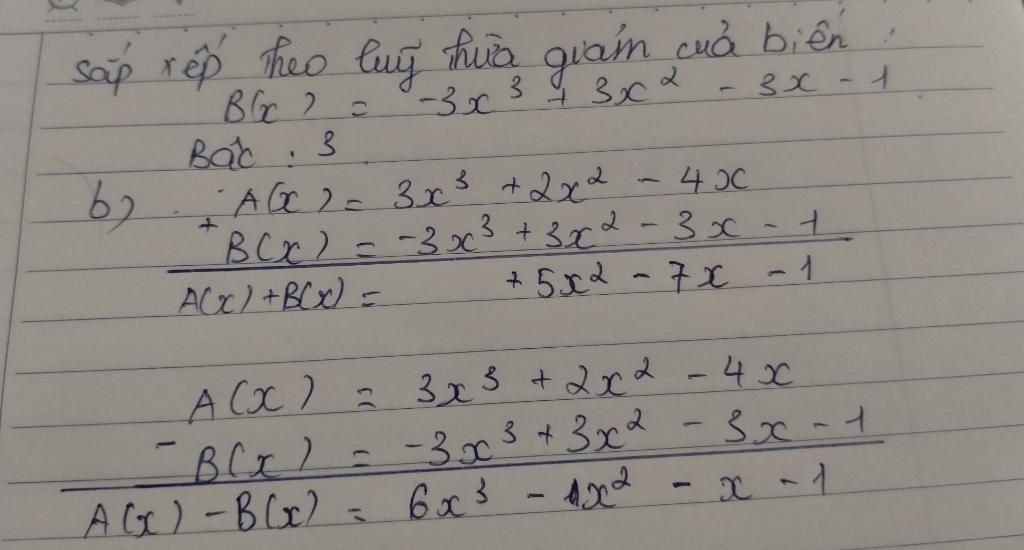 sắp xếp theo luỹ thừa giảm của biến :
B(x) = -3x³ + 3x² - 3x - 1
Bậc : 3
b) A(x) = 3x³ + 2x² - 4x
+ B(x) = -3x³ + 3x² - 3x - 1
A(x) + B(x) = + 5x² - 7x - 1
A(x) = 3x³ + 2x² - 4x
- B(x) = -3x³ + 3x² - 3x - 1
A(x) - B(x) = 6x³ - 1x² - x - 1